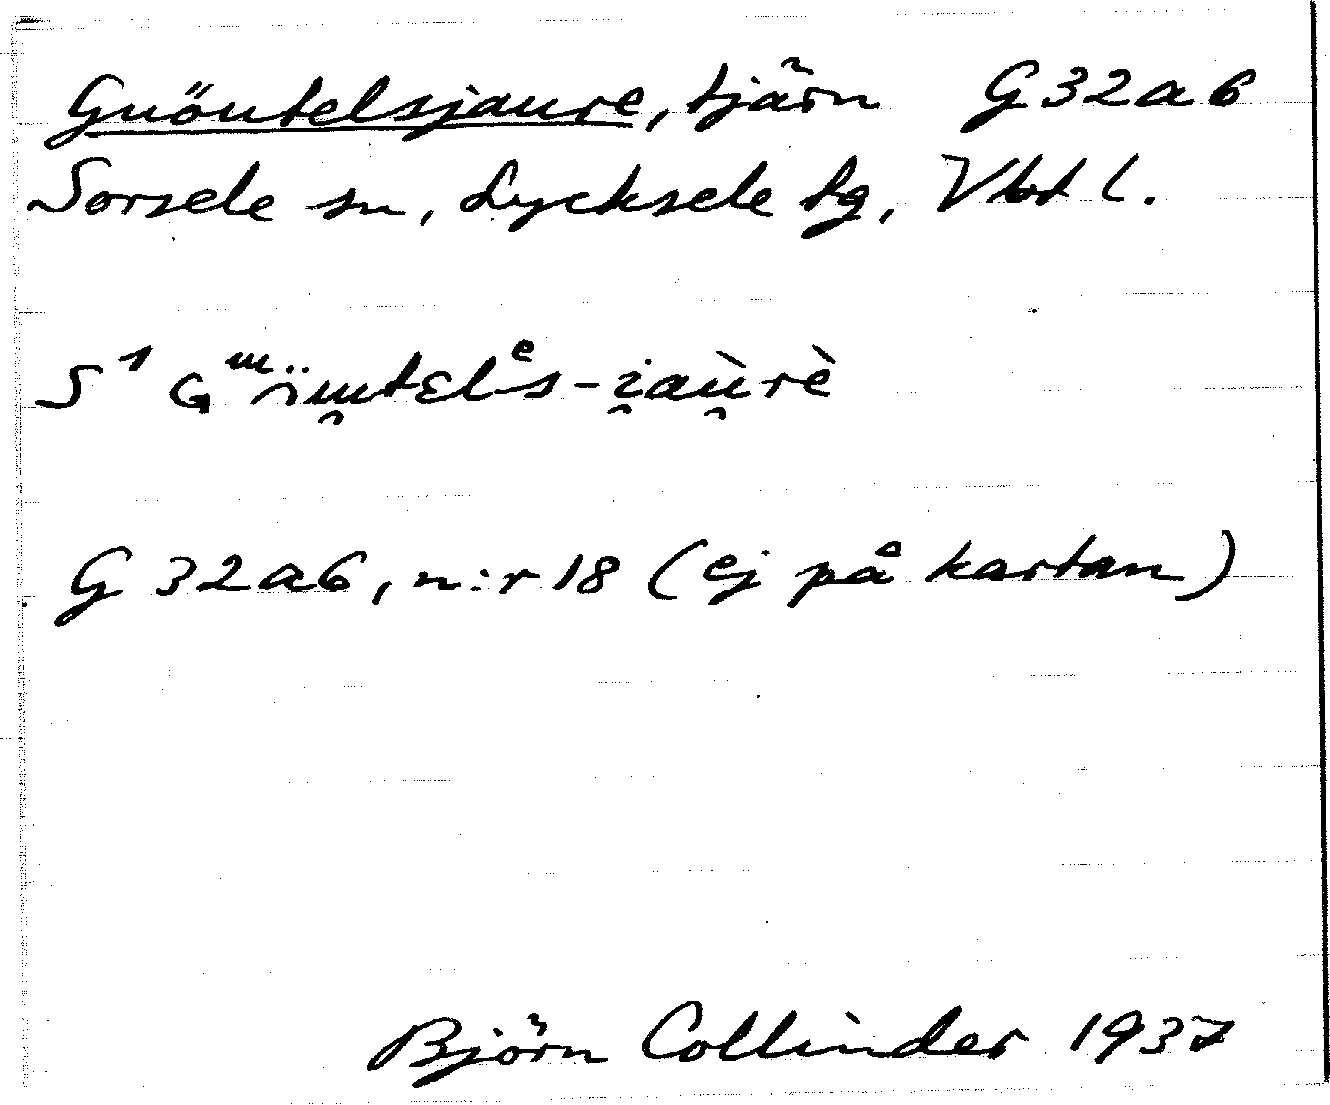 Guöutelsjaure, tjärn G32a6
Sorsele sn, Lycksele lg, Vbt l.
G 32a6, n:r 18 (ej på kartan)
Björn Collinder 1937